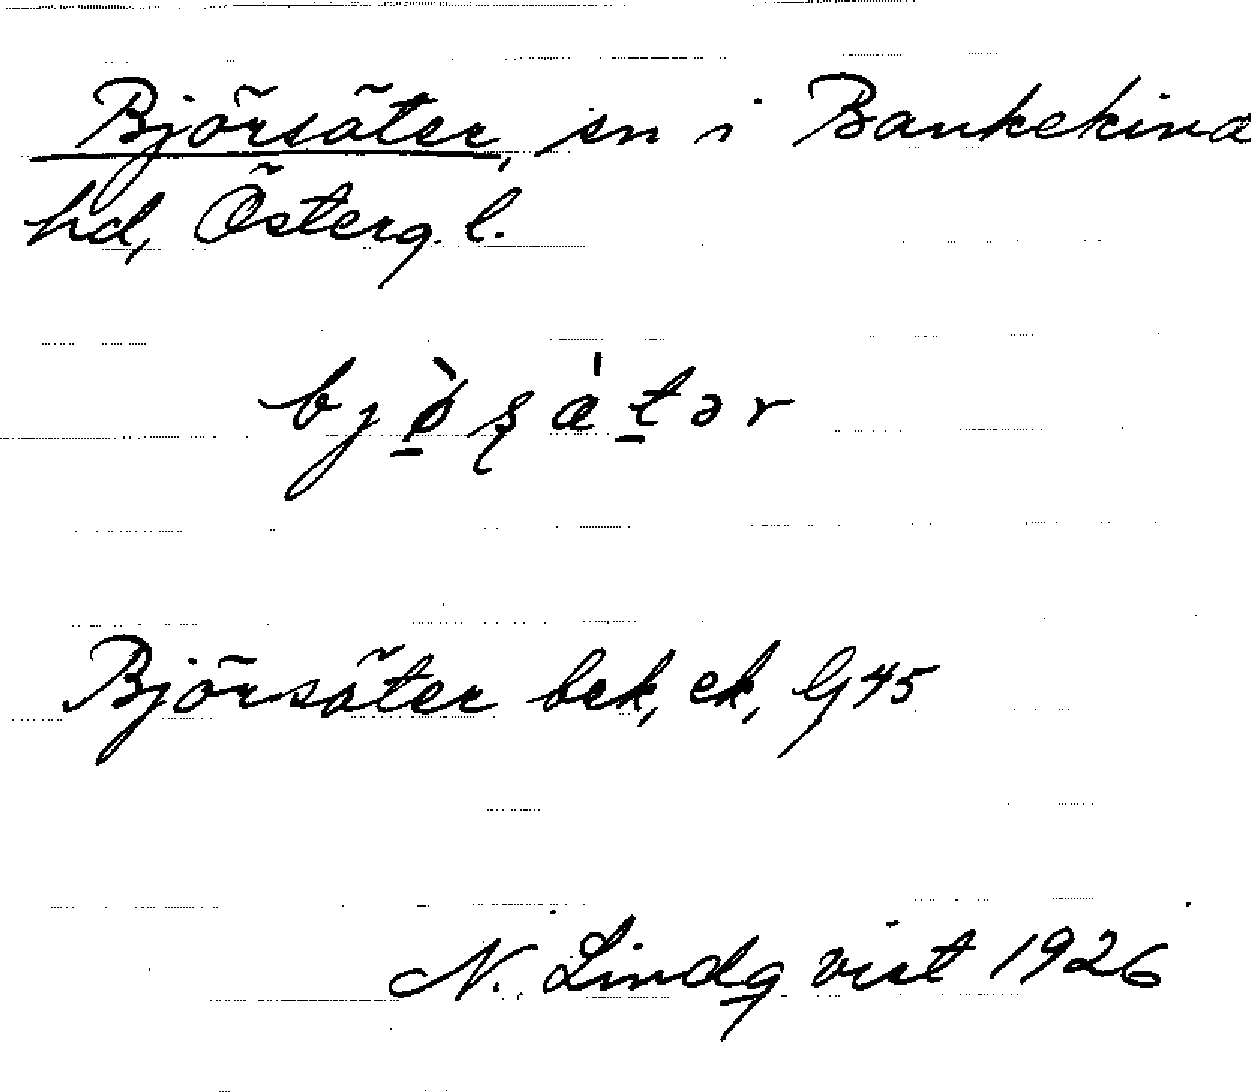 Björsäter, sn i Bankekind
hd, Österg. l.
bjø̀ṣæ̍tər
Björsäter bck, ek, G45
N. Lindqvist 1926